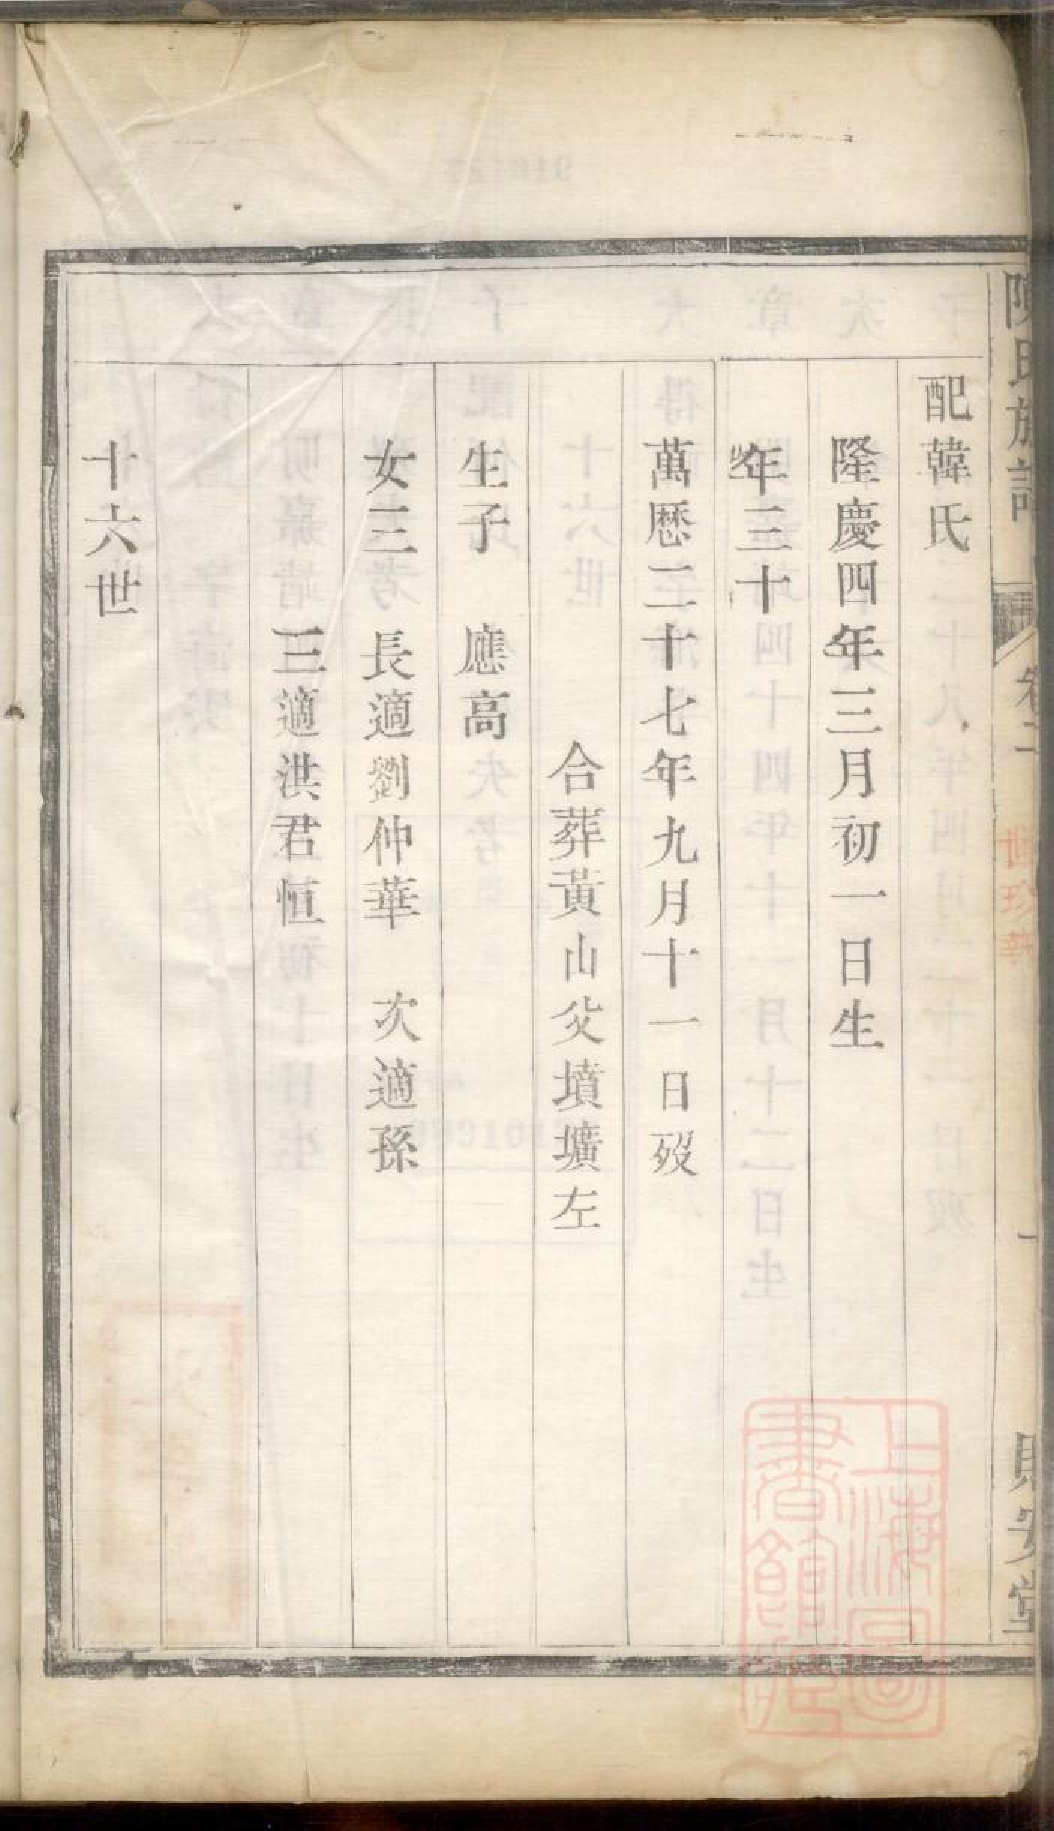 陳氏族譜
卷二
世珍執
一
貽安堂
配韓氏
隆慶四年三月初一日生
年三十
萬厯二十七年九月十一日歿
合葬黃山父墳壙左
生子　應高
女三　長適劉仲華　次適孫
三適洪君恒
十六世
上海圖書館藏